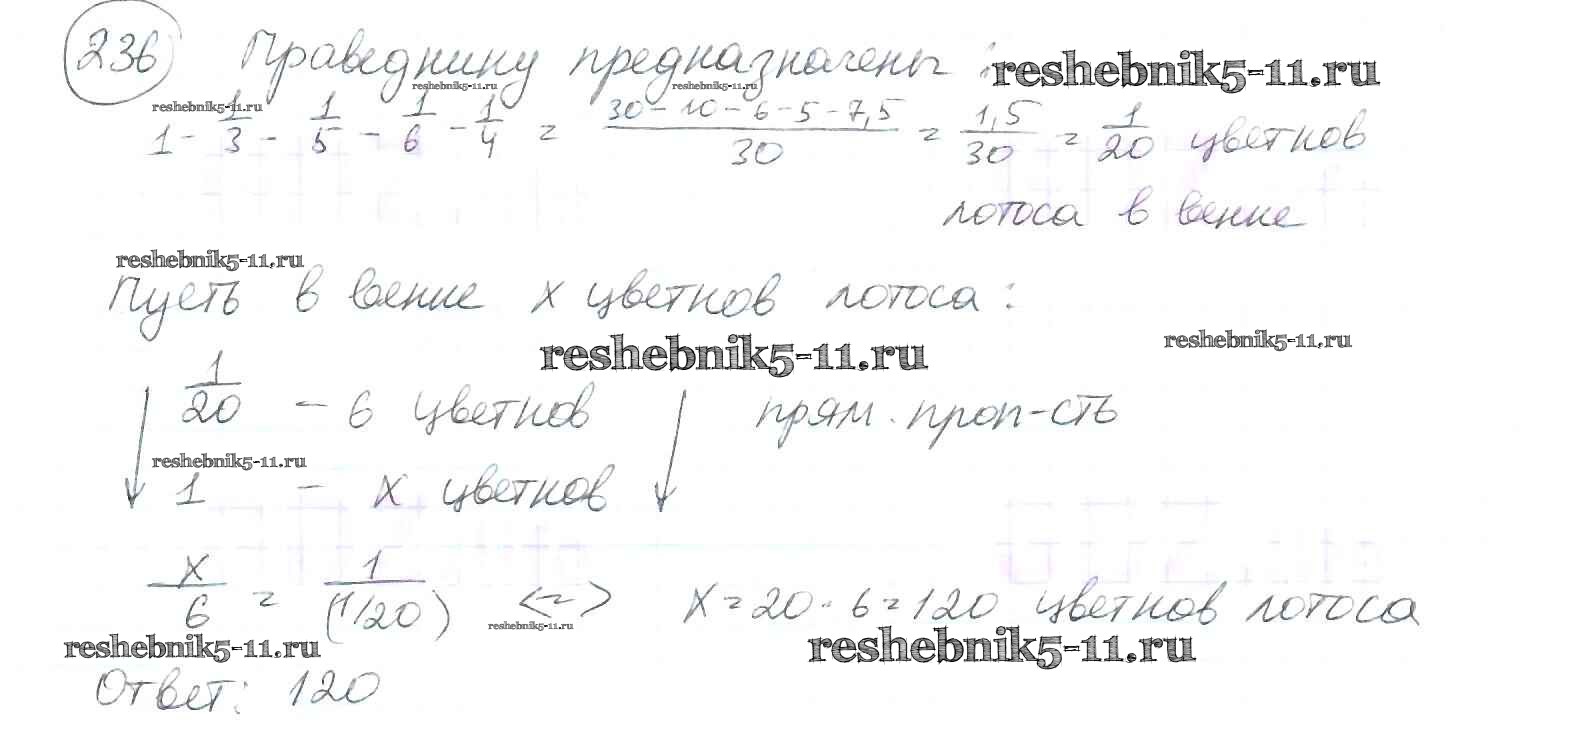 236 Праведнику предназначены : reshebnik5-11.ru
reshebnik5-11.ru reshebnik5-11.ru
reshebnik5-11.ru
1 - 1/3 - 1/5 - 1/6 - 1/4 = (30-10-6-5-7,5)/30 = 1,5/30 = 1/20 цветков
лотоса в венке
reshebnik5-11.ru
Пусть в венке x цветков лотоса:
reshebnik5-11.ru reshebnik5-11.ru
1/20 - 6 цветков прям. проп-сть
reshebnik5-11.ru
1 - x цветков
x/6 = 1/(1/20) <=> x = 20 · 6 = 120 цветков лотоса
reshebnik5-11.ru
reshebnik5-11.ru reshebnik5-11.ru
Ответ: 120